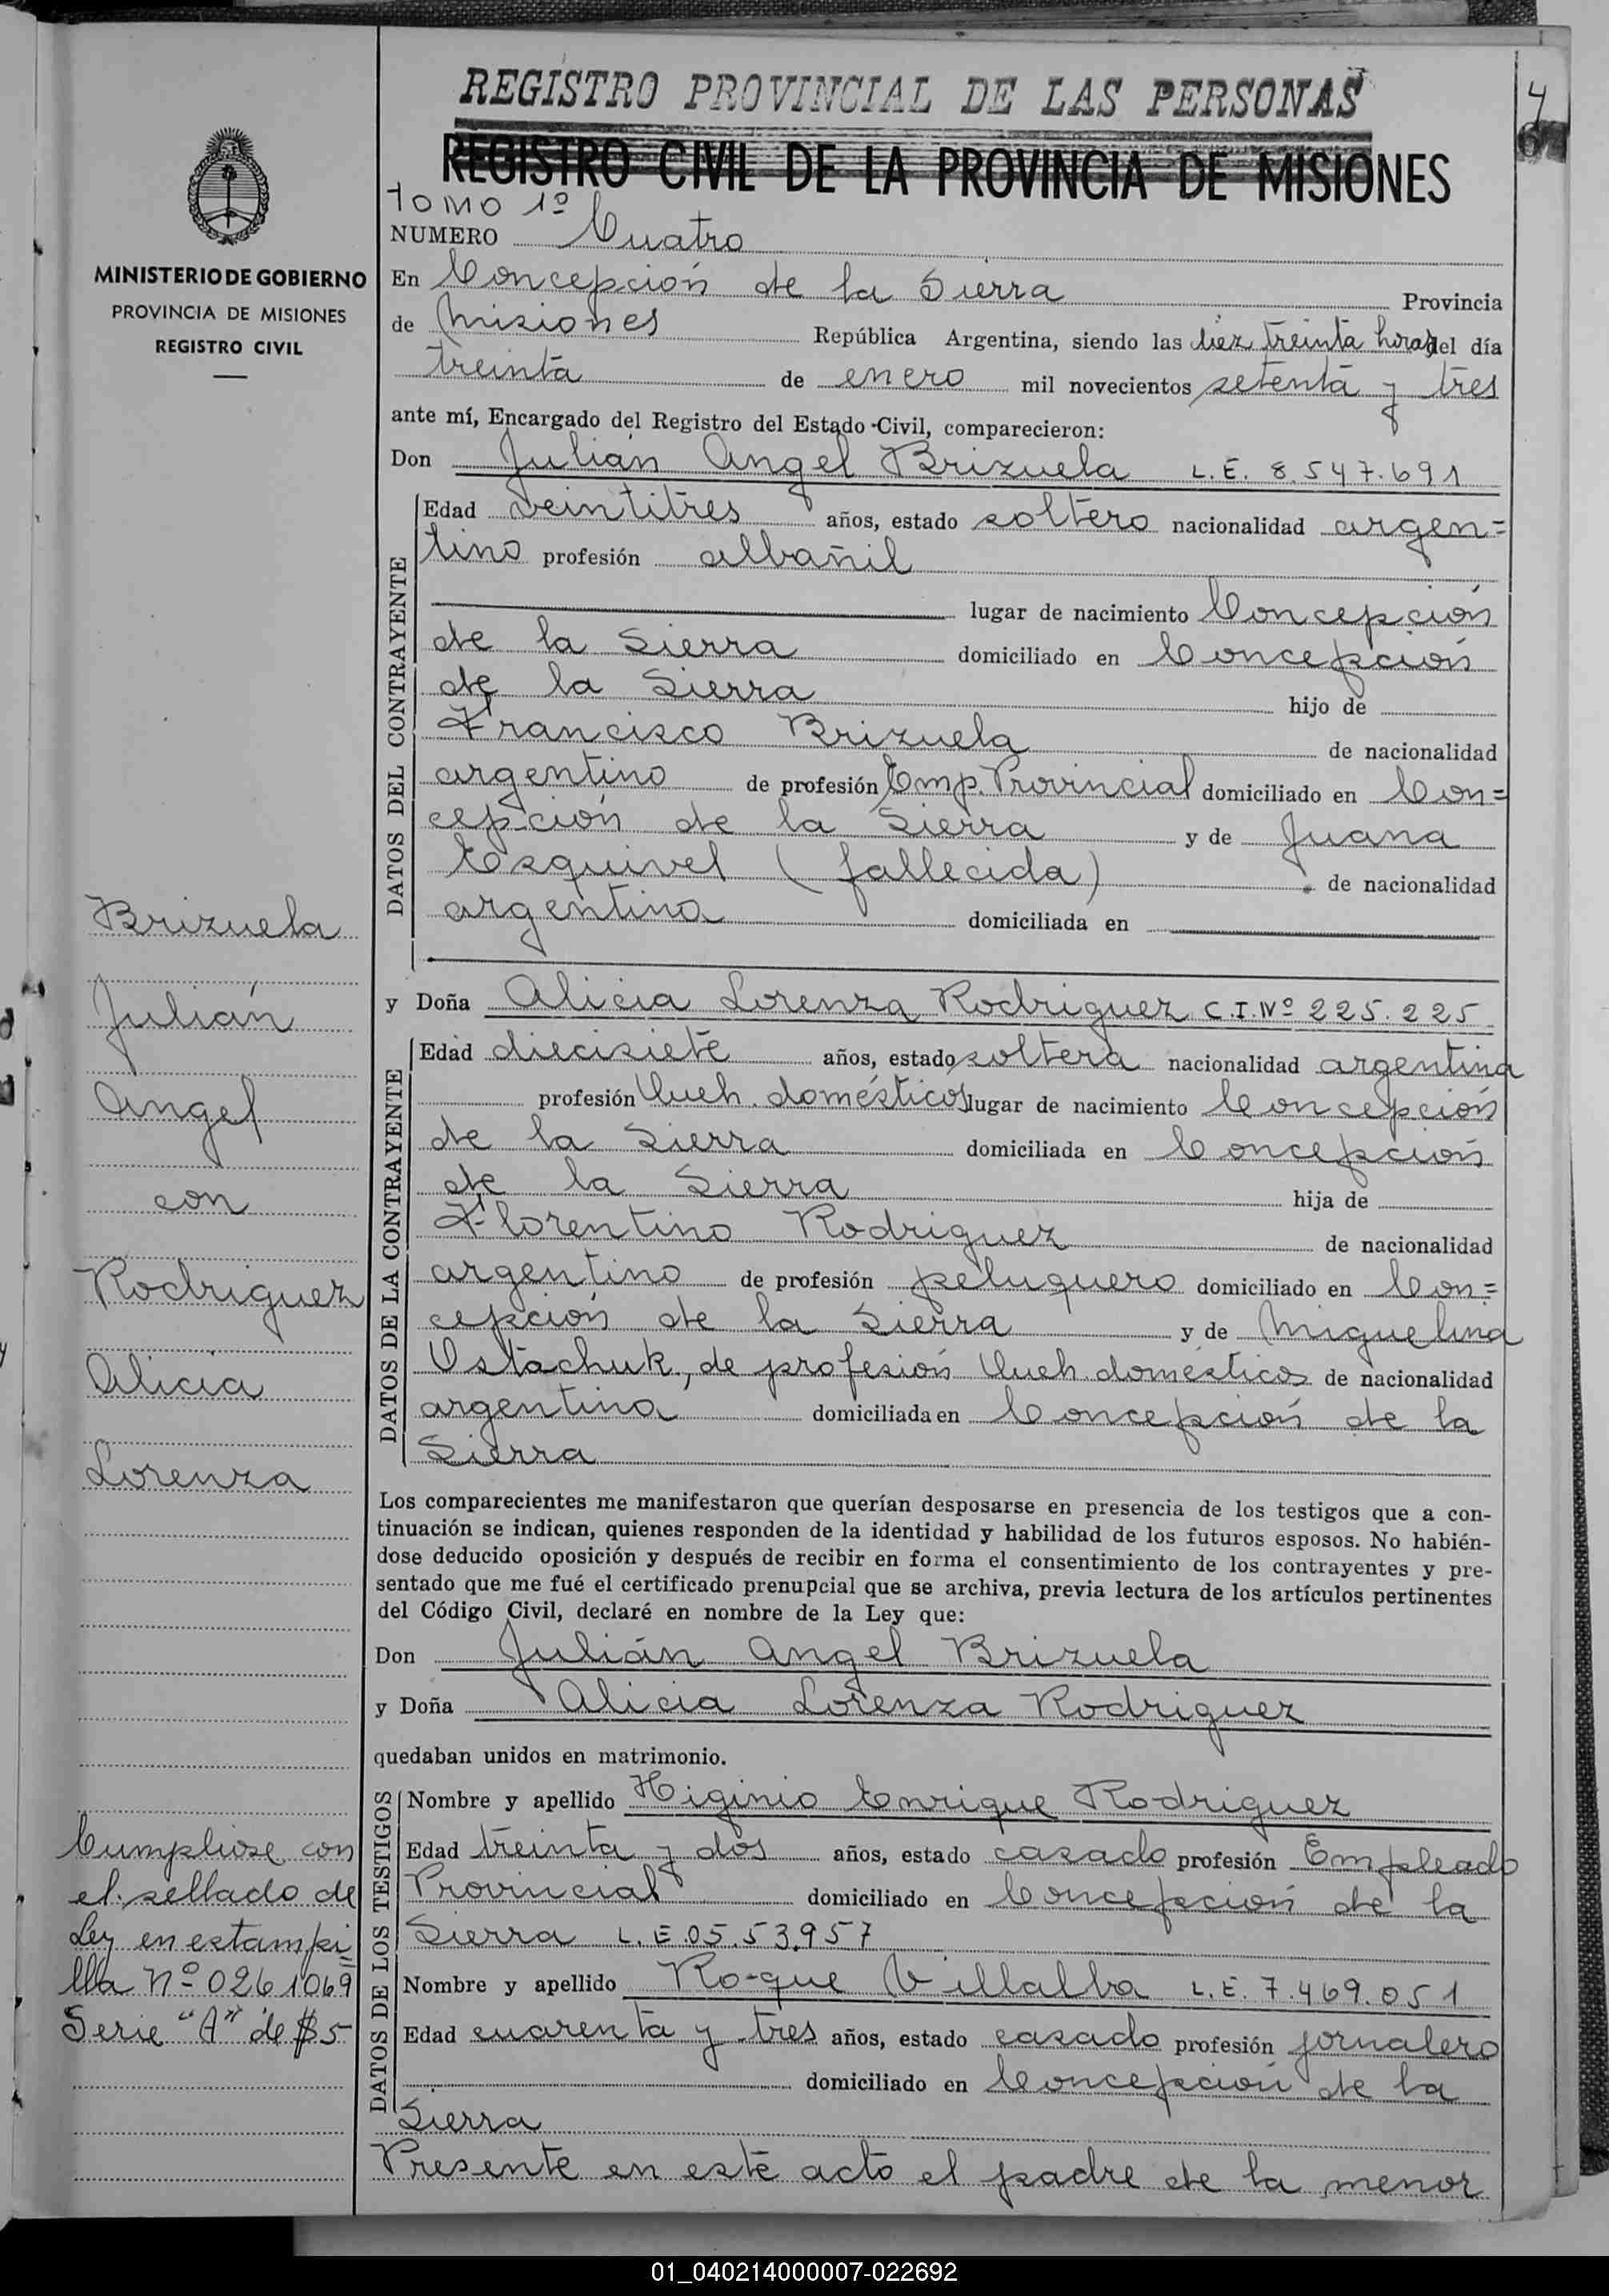 REGISTRO PROVINCIAL DE LAS PERSONAS
REGISTRO CIVIL DE LA PROVINCIA DE MISIONES
4
MINISTERIO DE GOBIERNO
PROVINCIA DE MISIONES
REGISTRO CIVIL
TOMO 1º
NUMERO Cuatro
En Concepción de la Sierra Provincia
de Misiones República Argentina, siendo las diez treinta horas del día
treinta de enero mil novecientos setenta y tres
ante mí, Encargado del Registro del Estado Civil, comparecieron:
Don Julián Angel Brizuela L.E. 8.547.691
DATOS DEL CONTRAYENTE
Edad veintitres años, estado soltero nacionalidad argen=
tino profesión albañil
lugar de nacimiento Concepción
de la Sierra domiciliado en Concepción
de la Sierra hijo de
Francisco Brizuela de nacionalidad
argentino de profesión Emp. Provincial domiciliado en Con=
cepción de la Sierra y de Juana
Esquivel (fallecida) de nacionalidad
argentina domiciliada en
y Doña Alicia Lorenza Rodriguez C.I.Nº 225.225
DATOS DE LA CONTRAYENTE
Edad diecisiete años, estado soltera nacionalidad argentina
profesión Queh. domésticos lugar de nacimiento Concepción
de la Sierra domiciliada en Concepción
de la Sierra hija de
Florentino Rodriguez de nacionalidad
argentino de profesión peluquero domiciliado en Con=
cepción de la Sierra y de Miguelina
Ostachuk, de profesión Queh. domésticos de nacionalidad
argentina domiciliada en Concepción de la
Sierra
Los comparecientes me manifestaron que querían desposarse en presencia de los testigos que a con-
tinuación se indican, quienes responden de la identidad y habilidad de los futuros esposos. No habién-
dose deducido oposición y después de recibir en forma el consentimiento de los contrayentes y pre-
sentado que me fué el certificado prenupcial que se archiva, previa lectura de los artículos pertinentes
del Código Civil, declaré en nombre de la Ley que:
Don Julián Angel Brizuela
y Doña Alicia Lorenza Rodriguez
quedaban unidos en matrimonio.
DATOS DE LOS TESTIGOS
Nombre y apellido Higinio Enrique Rodriguez
Edad treinta y dos años, estado casado profesión Empleado
Provincial domiciliado en Concepción de la
Sierra L.E.05.53.957
Nombre y apellido Roque Villalba L.E. 7.469.051
Edad cuarenta y tres años, estado casado profesión jornalero
domiciliado en Concepción de la
Sierra
Presente en este acto el padre de la menor
Brizuela
Julián
Angel
con
Rodriguez
Alicia
Lorenza
Cumpliose con
el sellado de
Ley en estampi
lla Nº 0261069
Serie "A" de $5
01_040214000007-022692